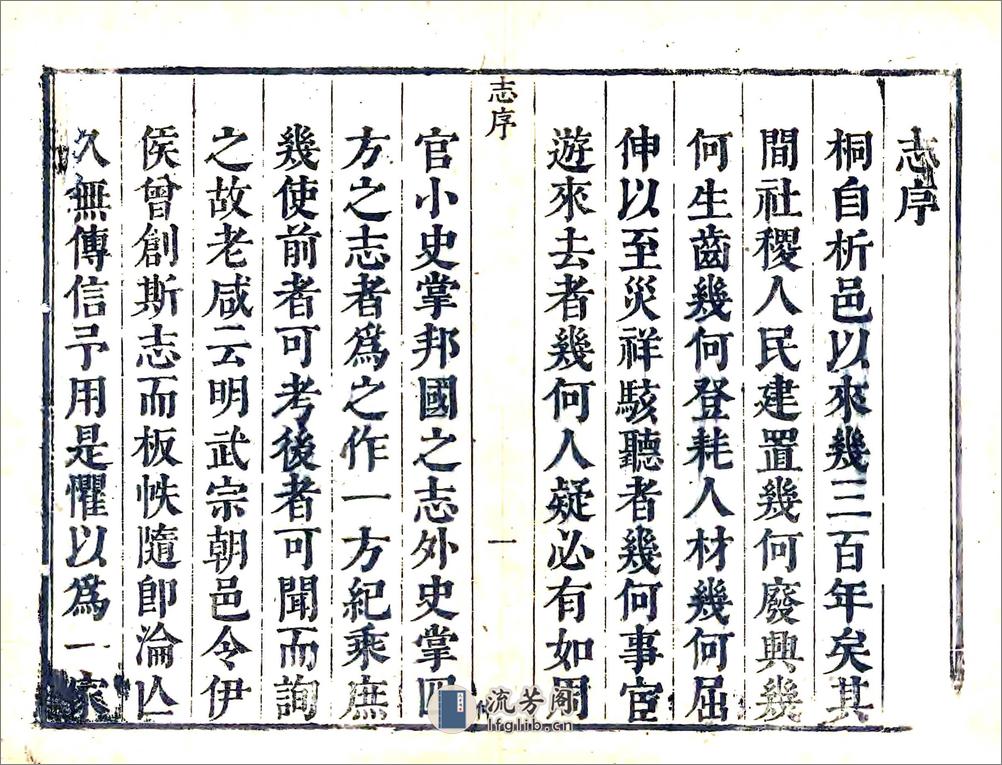 志序
桐自析邑以來幾三百年矣其
間社稷人民建置幾何廢興幾
何生齒幾何登耗人材幾何屈
伸以至災祥駭聽者幾何事宦
遊來去者幾何人疑必有如周
志序
一
官小史掌邦國之志外史掌四
方之志者爲之作一方紀乘庶
幾使前者可考後者可聞而詢
之故老咸云明武宗朝邑令伊
侯曾創斯志而板帙隨即淪亾
久無傳信予用是懼以爲一家
流芳阁
lfglib.cn